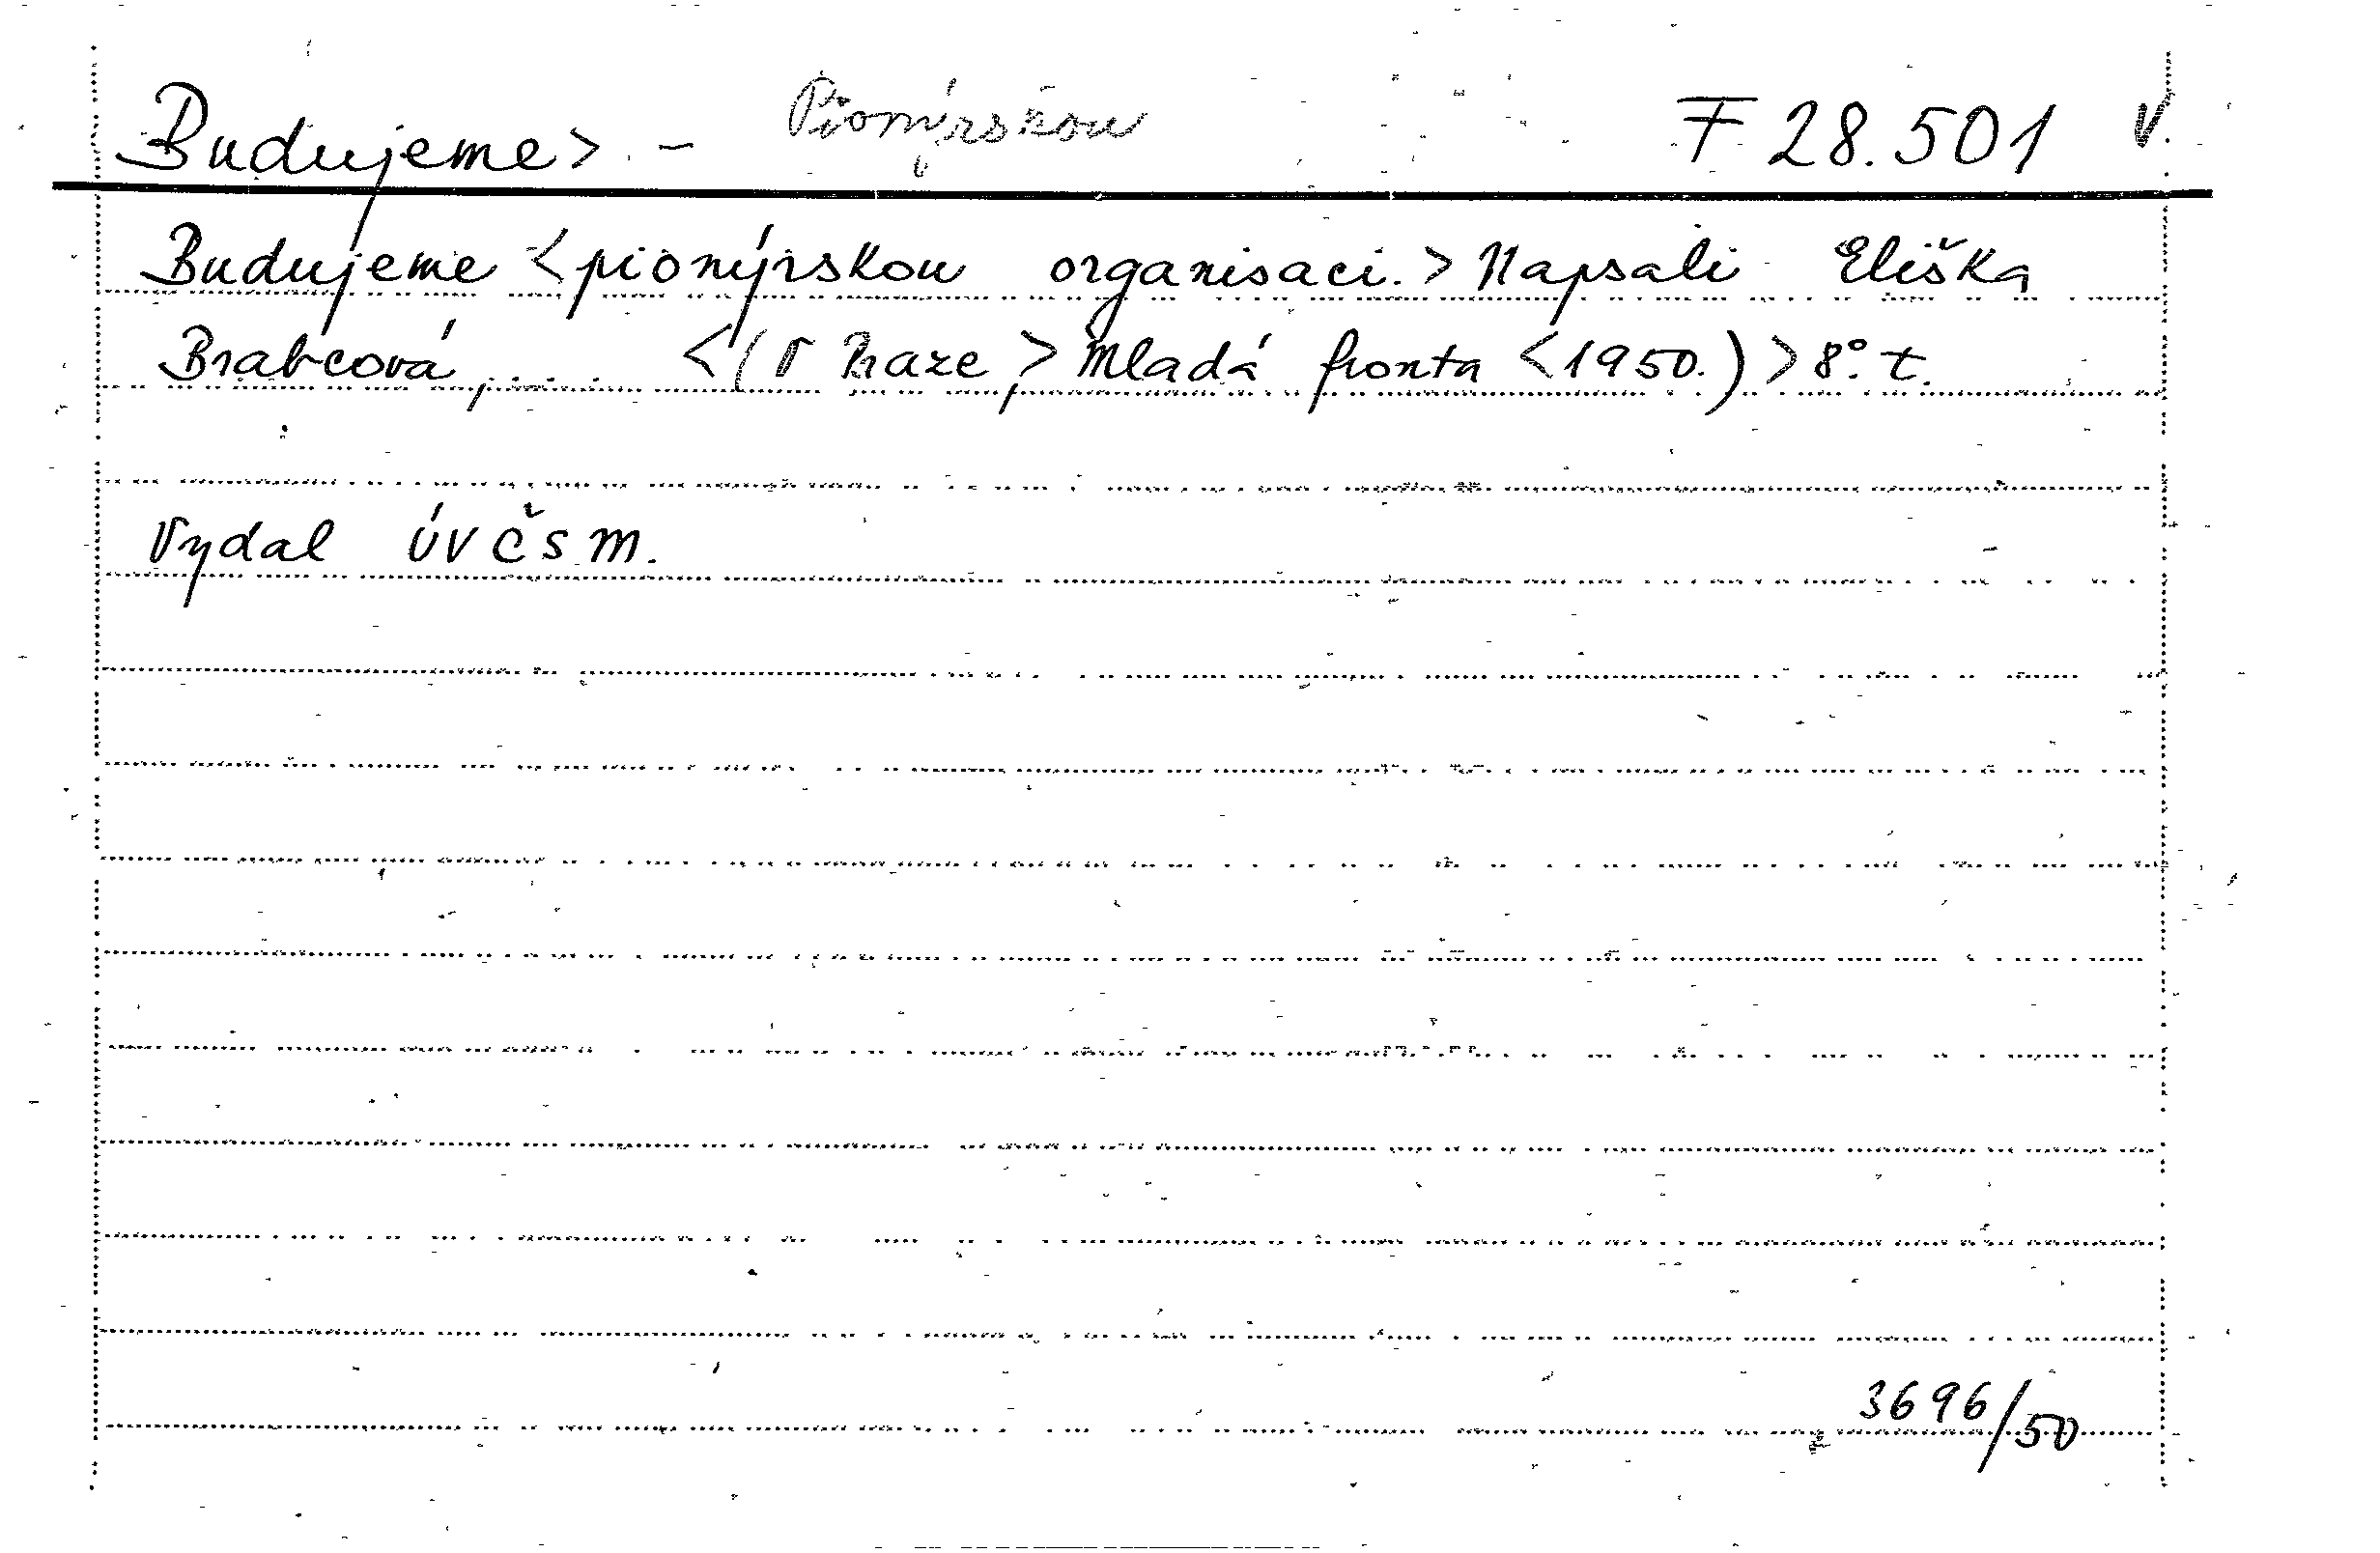 Budujeme> - Pionýrskou F 28.501 V.
Budujeme <pionýrskou organisaci.> Napsali Eliška
Brabcová, .... <(V Praze,> Mladá fronta <1950.)> 8°. t.
Vydal ÚVČSM.
3696/50